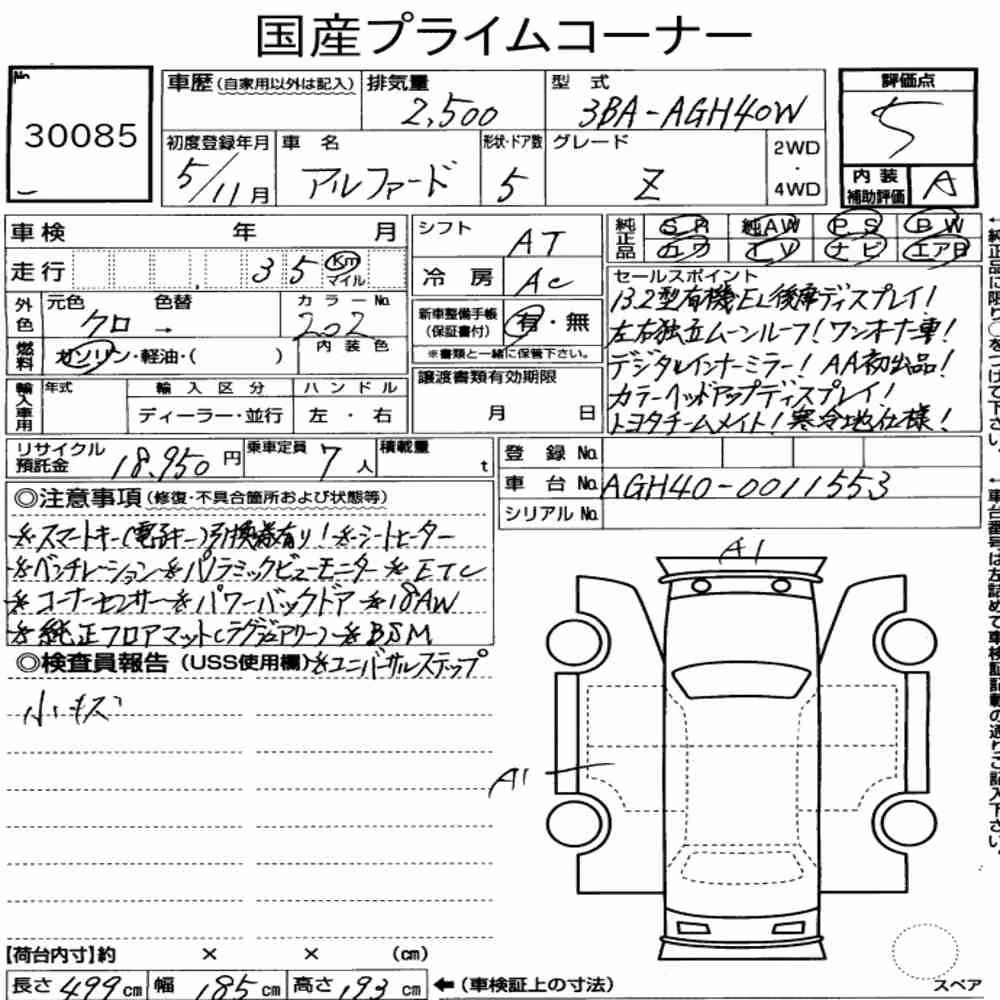 国産プライムコーナー
No.
30085
車歴(自家用以外は記入)
排気量
2,500
型 式
3BA-AGH40W
評価点
5
初度登録年月
5/11月
車 名
アルファード
形状・ドア数
5
グレード
Z
2WD
・
4WD
内装
補助評価
A
車検 年 月
シフト
AT
純正品
SR 純AW PS PW
カワ TV ナビ エアB
走行 35 Km
マイル
冷 房
AC
セールスポイント
13.2型有機EL後席ディスプレイ!
左右独立ムーンルーフ! ワンオーナー車!
デジタルインナーミラー! AA初出品!
カラーヘッドアップディスプレイ!
トヨタチームメイト! 寒冷地仕様!
外色
元色 色替
クロ →
カラーNo.
202
新車整備手帳
(保証書付)
有・無
※書類と一緒に保管下さい。
燃料
ガソリン・軽油・( )
内装色
輸入車用
年式
輸入区分
ディーラー・並行
ハンドル
左 ・ 右
譲渡書類有効期限
月 日
リサイクル
預託金
18,950円
乗車定員
7人
積載量
t
登 録 No.
車 台 No.
AGH40-0011553
シリアル No.
◎注意事項(修復・不具合箇所および状態等)
*スマートキー(電子キー)引換券有り! *シートヒーター
*ベンチレーション *パノラミックビューモニター *ETC
*コーナーセンサー *パワーバックドア *18AW
*純正フロアマット(ラグジュアリー) *BSM
◎検査員報告(USS使用欄) *ユニバーサルステップ
小キズ
A1
A1
【荷台内寸】約 × × (cm)
長さ499cm 幅185cm 高さ193cm ←(車検証上の寸法)
スペア